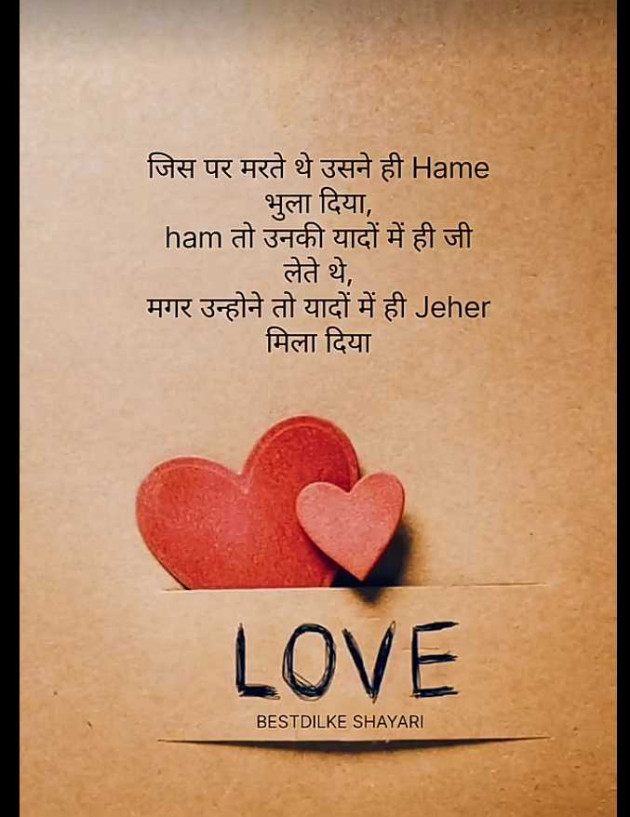 जिस पर मरते थे उसने ही Hame
भुला दिया,
ham तो उनकी यादों में ही जी
लेते थे,
मगर उन्होने तो यादों में ही Jeher
मिला दिया
LOVE
BESTDILKE SHAYARI